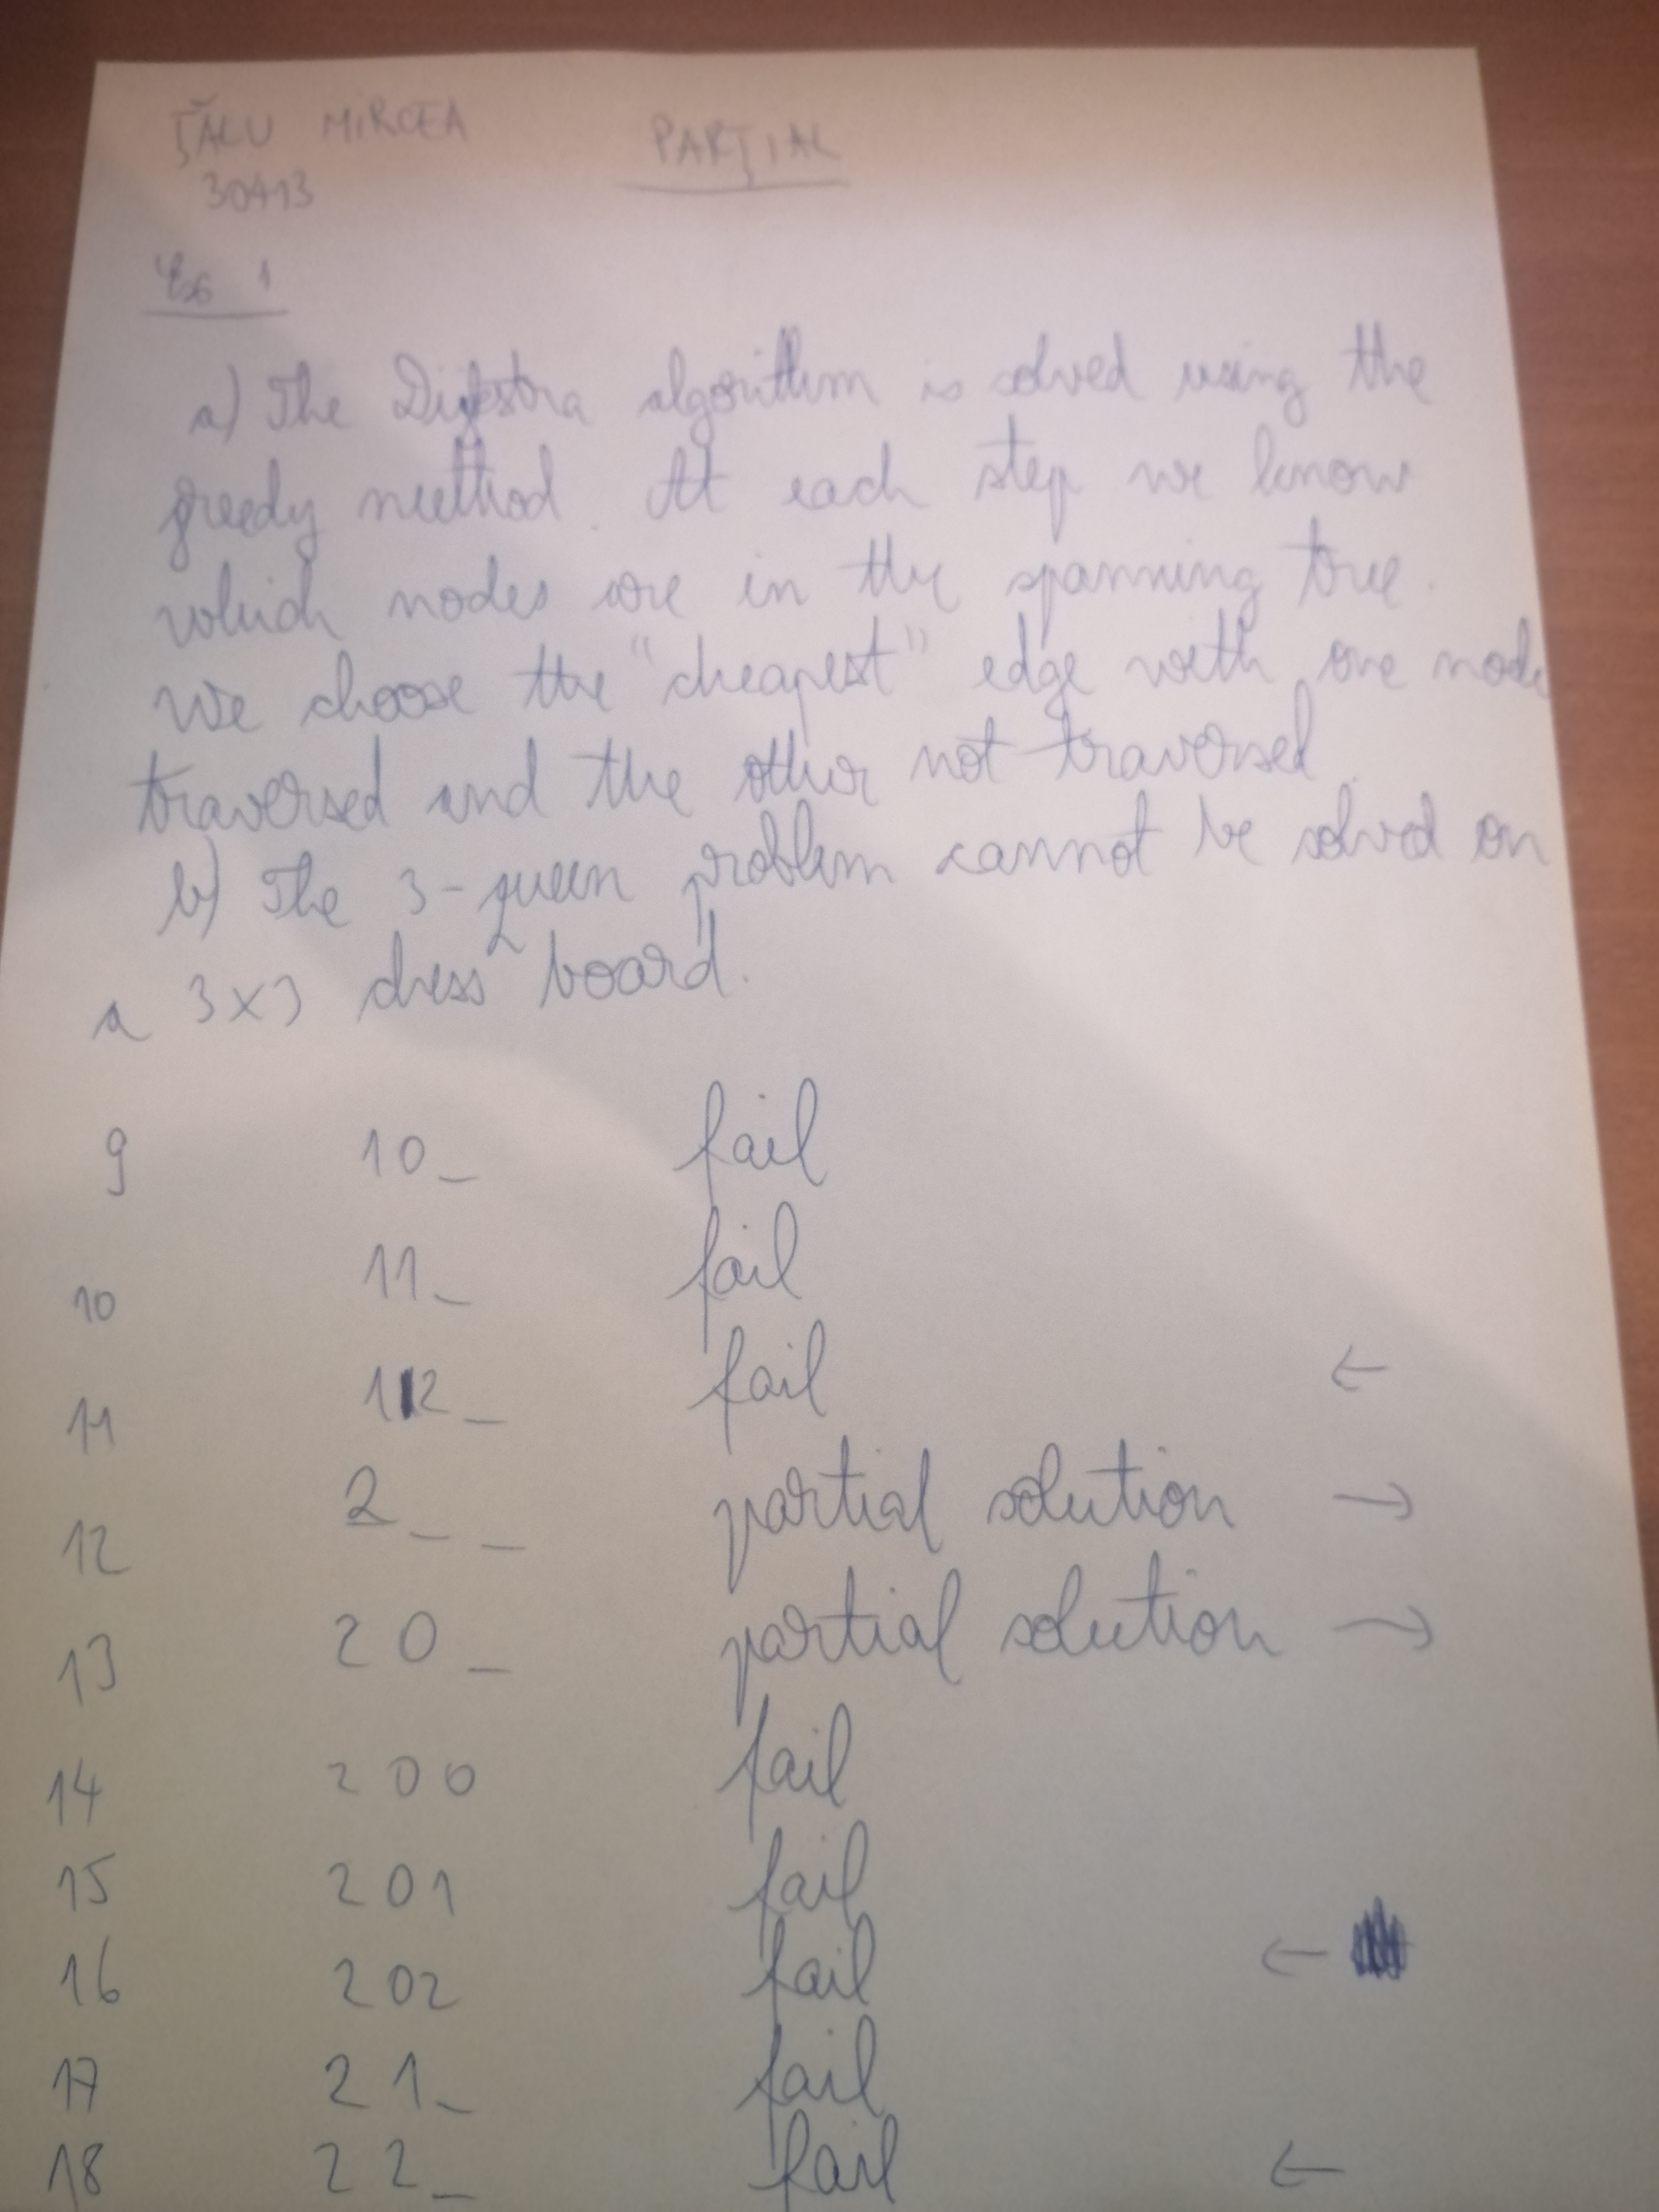 ȚĂLU MIRCEA PARȚIAL
30413
Ex 1
a) The Dijkstra algorithm is solved using the
greedy method. At each step we know
which nodes are in the spanning tree.
We choose the "cheapest" edge with one node
traversed and the other not traversed.
b) The 3-queen problem cannot be solved on
a 3x3 chess board.
9 10_ fail
10 11_ fail
11 12_ fail ←
12 2_ _ partial solution →
13 20_ partial solution →
14 200 fail
15 201 fail
16 202 fail ←
17 21_ fail
18 22_ fail ←